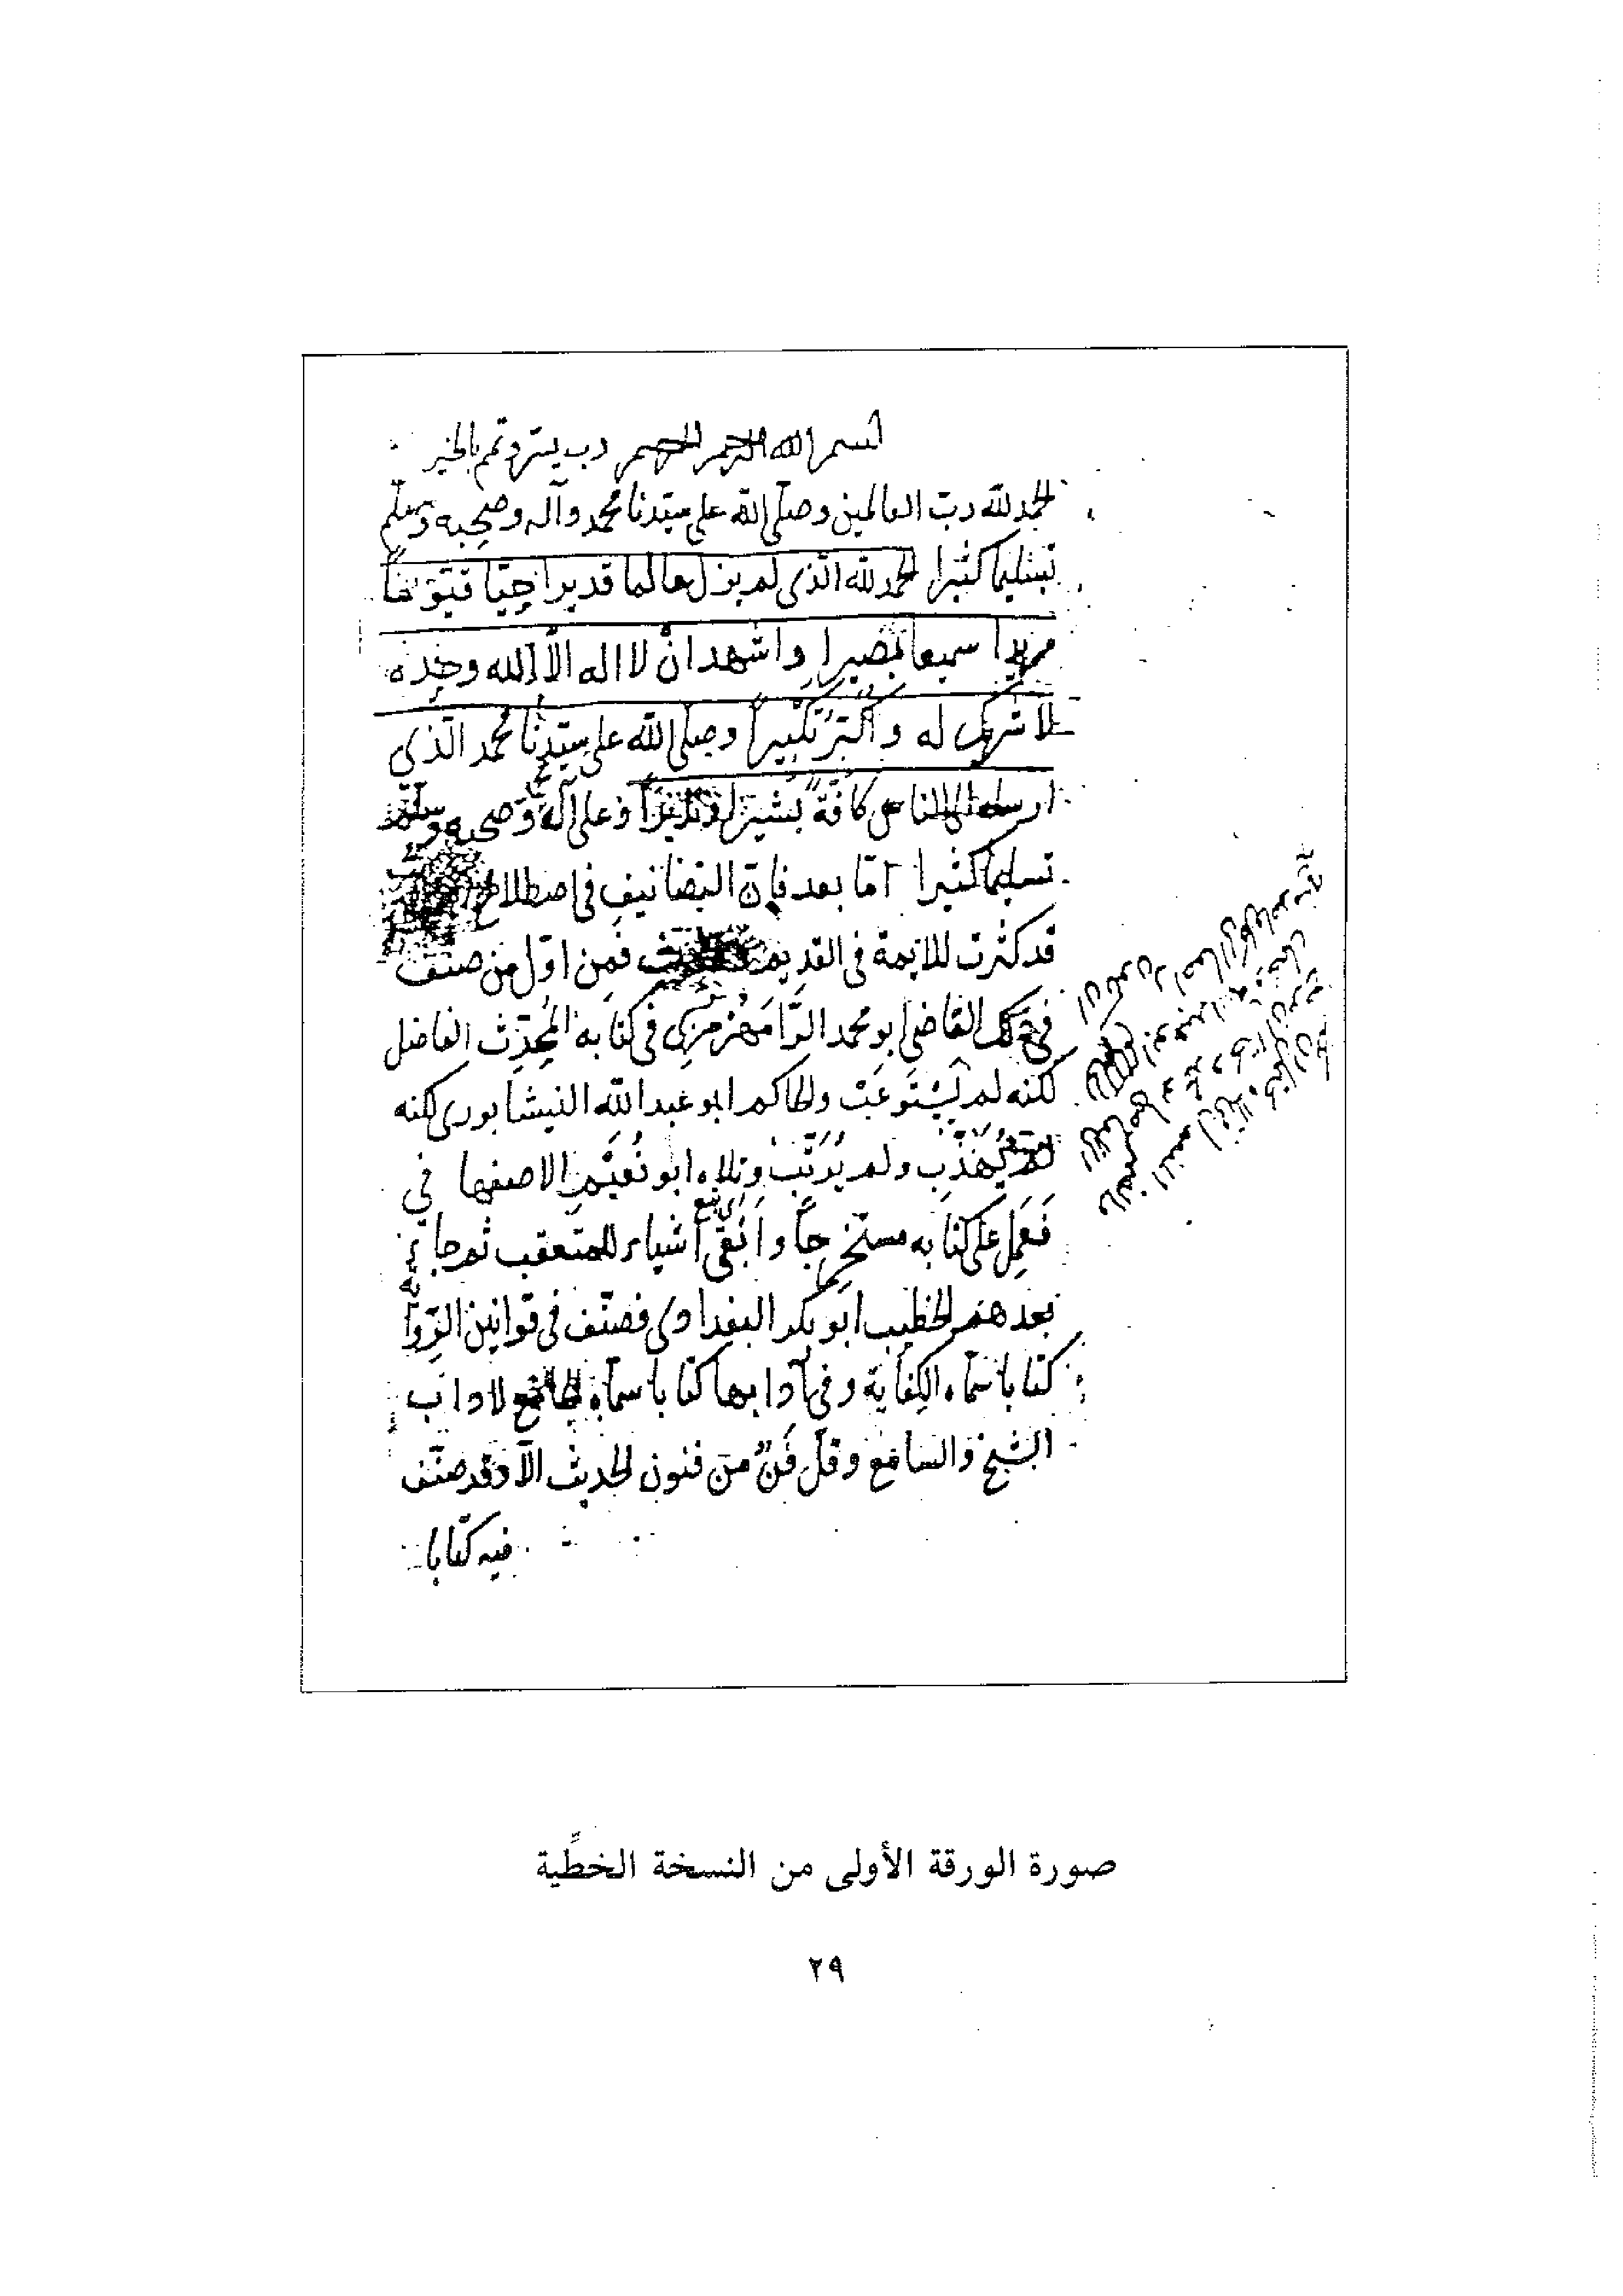 بسم الله الرحمن الرحيم رب يسر وتمم بالخير
الحمد لله رب العالمين وصلى الله على سيدنا محمد وآله وصحبه وسلم
تسليما كثيرا الحمد لله الذى لم يزل عالما قديرا حيّا قيّوما
مريدا سميعا بصيرا واشهد ان لا اله الّا الله وحده
لا شريك له واكبّره تكبيراً وصلى الله على سيّدنا محمد الّذى
ارسله الى الناس كافّة بشيرا ونذيراً وعلى آله وصحبه وسلّم
تسليما كثيرا امّا بعد فانّ التصانيف فى اصطلاح
قد كثرت للايمة فى القديم فمن اوّل من صنّف
فى ذلك القاضى ابو محمد الرّامَهُرْمُزِى فى كتابه المحدّث الفاضل
لكنه لم يَسْتَوعَبْ والحاكم ابو عبد الله النيشابورى لكنه
لم يُهَذّب ولم يُرَتّب وتلاه ابو نُعَيْم الاصفها فى
فَعَمِل على كتابه مستخرجاً واَبْقَى اشياء للمتعقب ثم جاء
بعدهم الخطيب ابو بكر البغدادى فصنّف فى قوانين الرّوا
كتابا سمّاه الكِفَاية وفى آدابها كتابا سمّاه الجامع لاداب
الشيخ والسامع وقلّ فَنٌّ من فنون الحديث الّا وقد صنّف
فيه كتابا
صورة الورقة الأولى من النسخة الخطِّية
٢٩